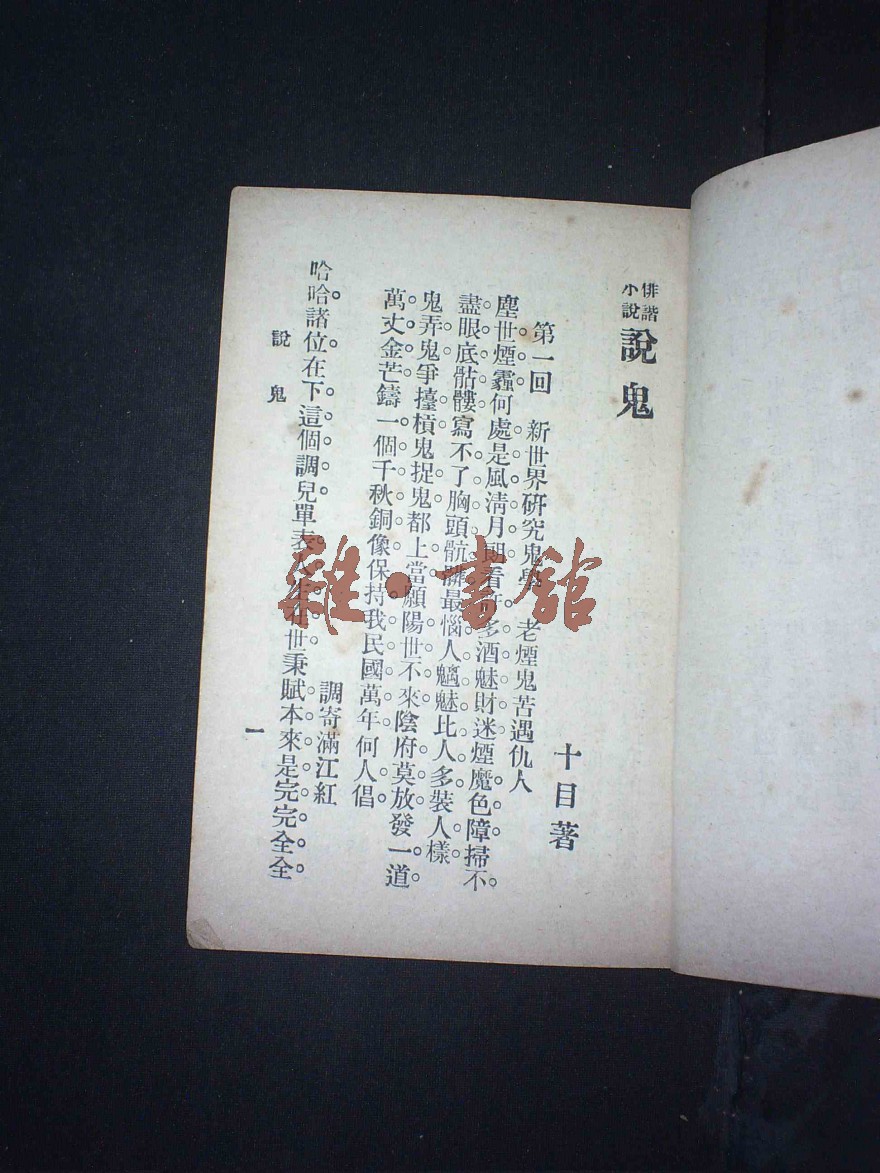 俳諧小說 說鬼
十目著
第一回 新世界研究鬼學 老煙鬼苦遇仇人
塵世煙霾何處是風清月朗看許多酒魅財迷煙魔色障掃不
盡眼底骷髏寫不了胸頭骯髒最惱人魑魅比人多裝人樣
鬼弄鬼爭擡槓鬼捉鬼都上當願陽世不來陰府莫放發一道
萬丈金芒鑄一個千秋銅像保持我民國萬年何人倡
調寄滿江紅
哈哈諸位在下這個調兒單表人生在世秉賦本來是完完全全
說鬼
一
雜·書館